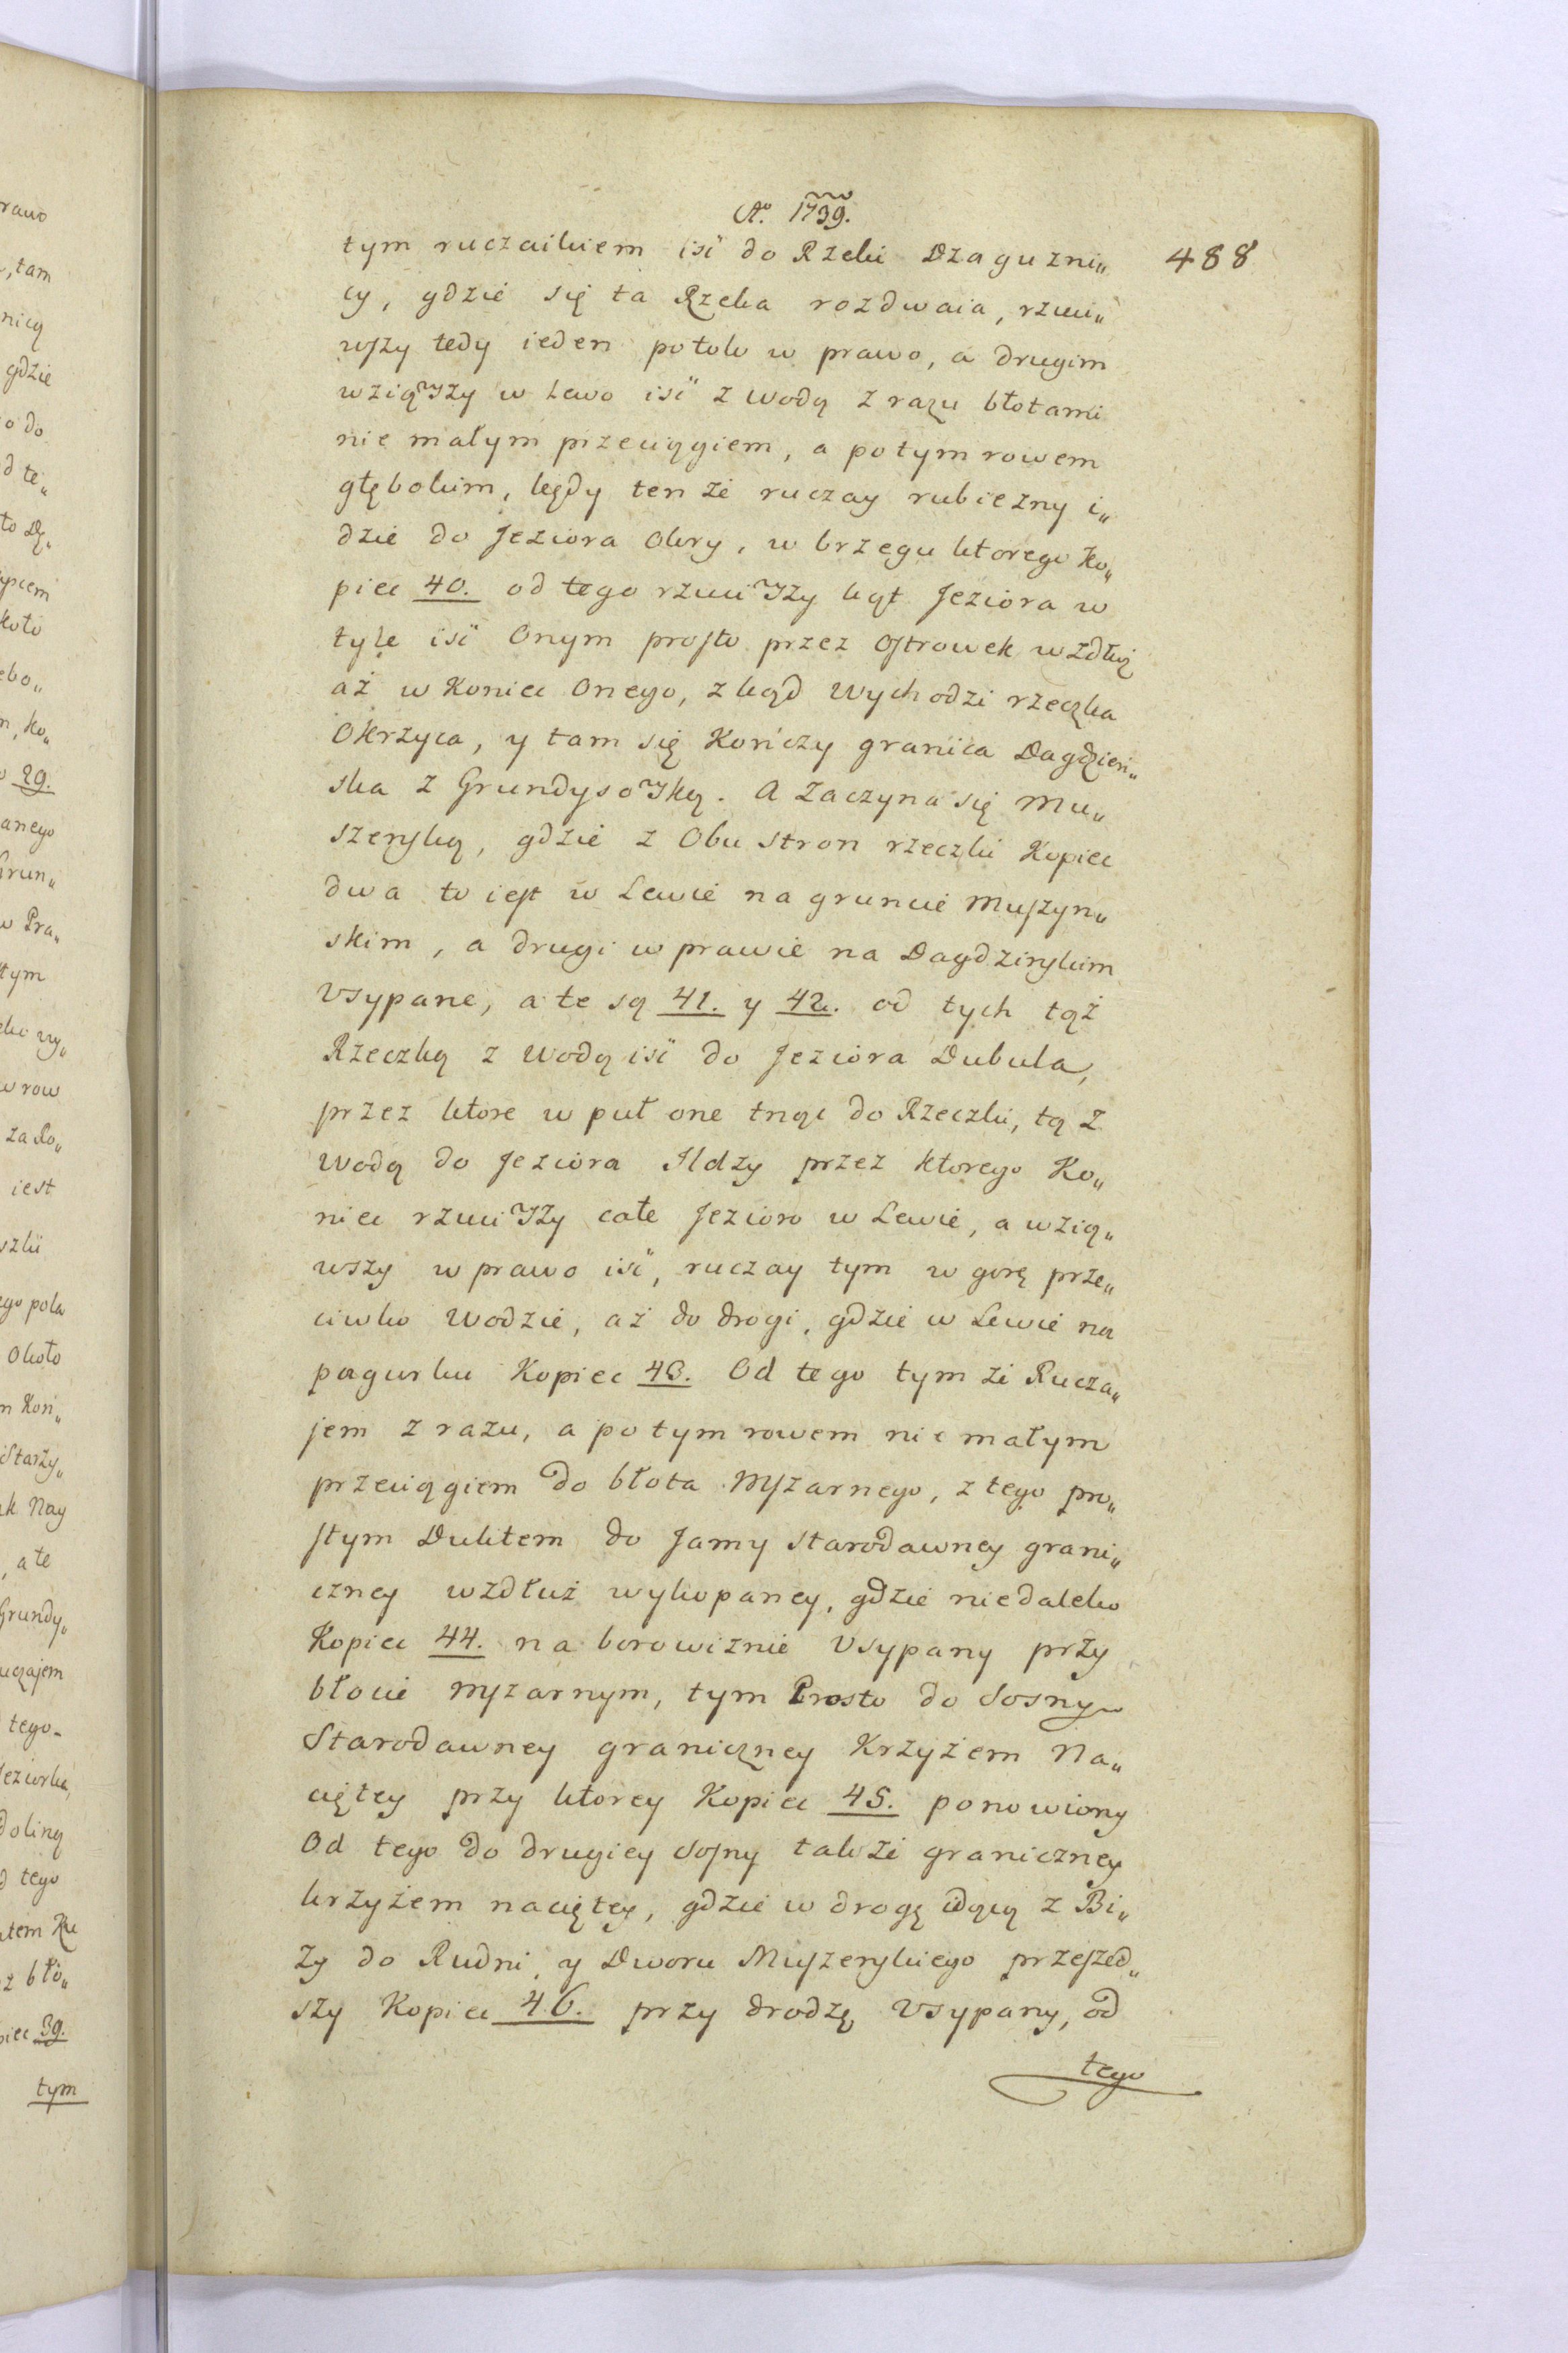 rawo
, tam
nicą
gdzie
o do
d te„
to Dą„
koło
ebo„
n, ko„
29.
anego
Grun„
w Pra„
tym
w row
za Ro„
iest
szki
ego pola
około
m Koń„
Starzy„
ak Nay
, a te
Grundy„
uczajem
tego
Jeziorka,
doliną
d tego
z bło„
piec 39.
tym
Aº. 1739.
488
tym ruczaikiem iść do Rzeki Dzaguzni„
cy, gdzie się ta Rzeka rozdwaia, rzuci„
wszy tedy ieden potok w prawo, a drugim
wziąwszy w Lewo iść z wodą z razu błotami
nie małym przeciągiem, a potym rowem
głębokim, kędy ten że ruczay rubiezny i„
dzie do Jeziora Okry, w brzegu ktorego Ko„
piec 40. od tego rzuciwszy kąt Jeziora w
tyle iść Onym prosto przez Ostrowek wzdłuż
aż w Koniec Onego, zkąd wychodzi rzeczka
Okrzyca, y tam się Kończy granica Dagdzień„
ska z Grundysowską. A Zaczyna się Mu„
szenską, gdzie z Obu stron rzeczki Kopiec
dwa to iest w Lewie na gruncie Muszyn„
skim, a drugi w prawie na Dagdzinskim
Vsypane, a te są 41. y 42. od tych tąż
Rzeczką z wodą iść do Jeziora Dubula,
przez ktore w puł one tnąc do Rzeczki, tą z
wodą do Jeziora Ildzy przez ktorego Ko„
niec rzuciwszy całe Jezioro w Lewie, a wzią„
wszy w prawo iść, ruczay tym w gorę prze„
ciwko wodzie, aż do drogi, gdzie w Lewie na
pagurku Kopiec 43. Od tego tym że Rucza„
jem z razu, a potym rowem nie małym
przeciągiem do błota Mszarnego, z tego pro„
stym Duktem do Jamy starodawney grani„
czney wzdłuż wykopaney, gdzie niedaleko
Kopiec 44. na borowiznie Vsypany przy
błocie mszarnym, tym Prosto do Sosny
Starodawney graniczney Krzyżem Na„
ciętey przy ktorey Kopiec 45. ponowiony
Od tego do drugiey Sosny także graniczney
krzyżem naciętey, gdzie w drogę idącą z Bi„
zy do Rudni y Dworu Muszenskiego przeszed„
szy Kopiec 46. przy drodzę Vsypany, od
tego